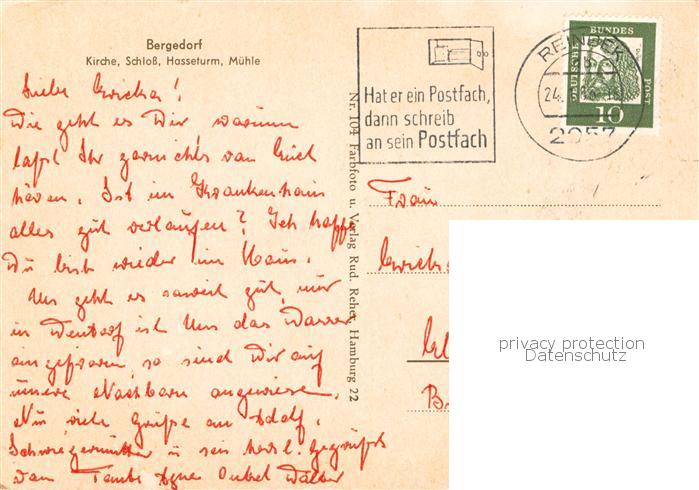 Bergedorf
Kirche, Schloß, Hasseturm, Mühle
Liebe
Wie geht es Dir warum
laßt Ihr garnichts von Euch
hören. Ist im Krankenhaus
alles gut verlaufen? Ich hoffe
Du bist wieder im Haus.
Uns geht es soweit gut, nur
in Wentorf ist uns das Wasser
eingefroren, so sind Wir auf
unsere Nachbarn angewiesen.
Nun viele Grüße an Adolf,
Schwiegermutter u sei herzl. gegrüßt
von Tante Onkel Walter
Nr. 104 Farbfoto u. Verlag Rud. Reher, Hamburg 22
Hat er ein Postfach,
dann schreib
an sein Postfach
REINBEK
24.
2057
DEUTSCHE BUNDESPOST
10
Frau
privacy protection
Datenschutz